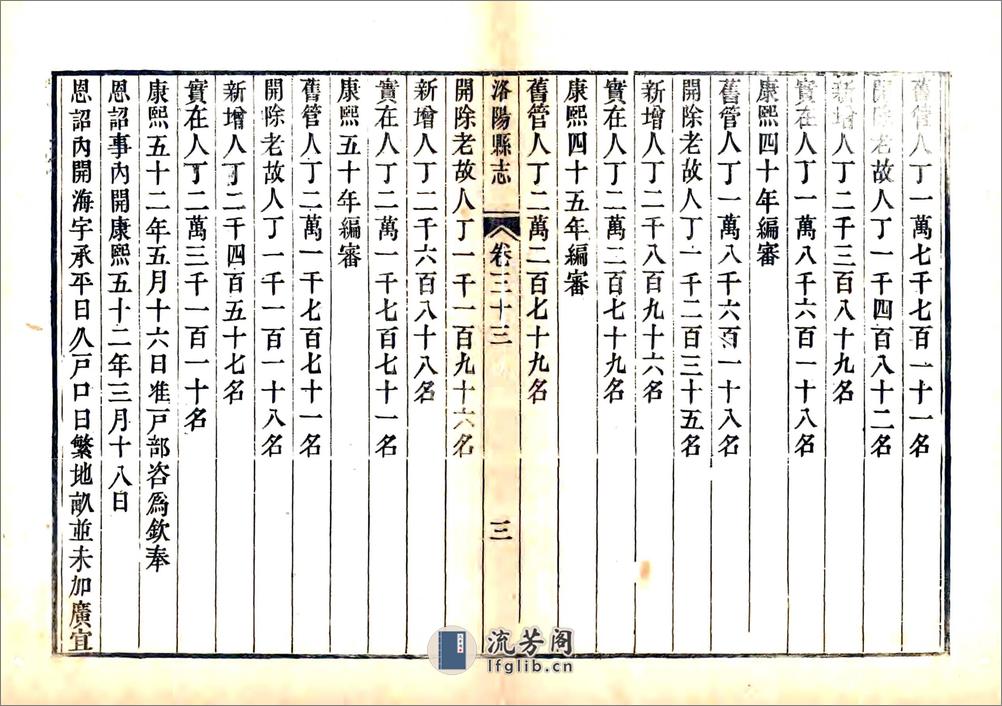 舊管人丁一萬七千七百一十一名
開除老故人丁一千四百八十二名
新增人丁二千三百八十九名
實在人丁一萬八千六百一十八名
康熙四十年編審
舊管人丁一萬八千六百一十八名
開除老故人丁一千二百三十五名
新增人丁二千八百九十六名
實在人丁二萬二百七十九名
康熙四十五年編審
舊管人丁二萬二百七十九名
洛陽縣志 卷三十三 三
開除老故人丁一千一百九十六名
新增人丁二千六百八十八名
實在人丁二萬一千七百七十一名
康熙五十年編審
舊管人丁二萬一千七百七十一名
開除老故人丁一千一百一十八名
新增人丁二千四百五十七名
實在人丁二萬三千一百一十名
康熙五十二年五月十六日准戸部咨爲欽奉
恩詔事內開康熙五十二年三月十八日
恩詔內開海宇承平日久戸口日繁地畝並未加廣宜
流芳阁
lfglib.cn